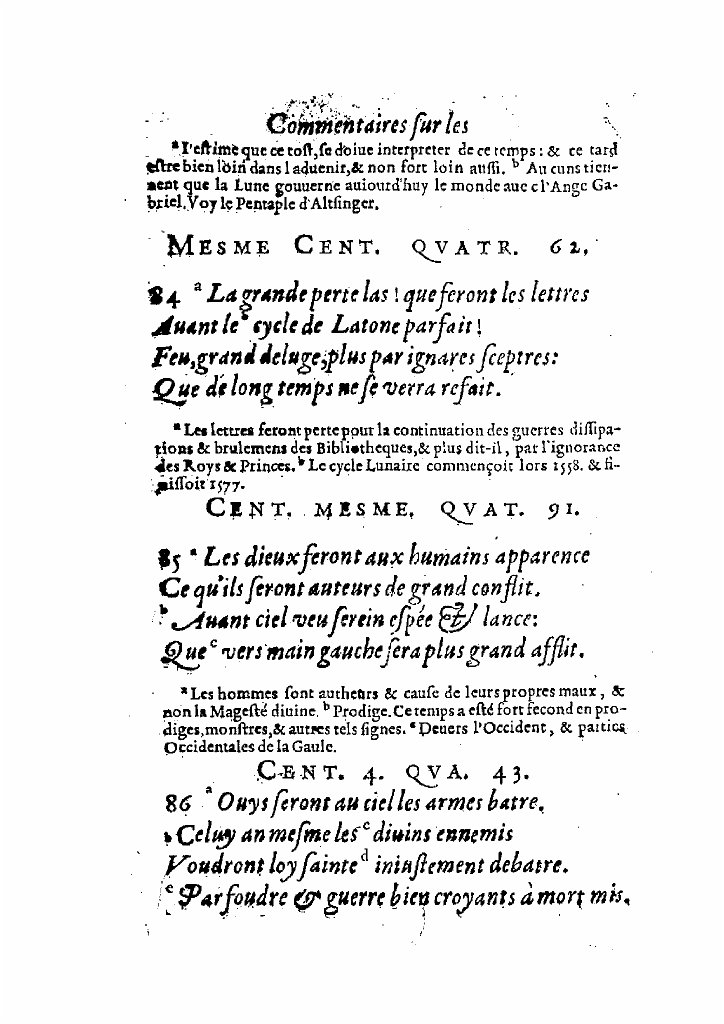 Commentaires ſur les
ᵃ I'eſtime que ce toſt, ſe doiue interpreter de ce temps : & ce tard
eſtre bien loin dans l aduenir, & non fort loin auſſi. ᵇ Aucuns tien-
nent que la Lune gouuerne auiourd'huy le monde auec l'Ange Ga-
briel. Voy le Pentaple d'Altſinger.
MESME CENT. QVATR. 62.
84 ᵃ La grande perte las ! que feront les lettres
Auant le ᵇ cycle de Latone parfait !
Feu, grand deluge, plus par ignares ſceptres :
Que de long temps ne ſe verra refait.
ᵃ Les lettres feront perte pour la continuation des guerres diſſipa-
tions & brulemens des Bibliotheques, & plus dit-il, par l'ignorance
des Roys & Princes. ᵇ Le cycle Lunaire commençoit lors 1558. & fi-
niſſoit 1577.
CENT. MESME. QVAT. 91.
85 ᵃ Les dieux feront aux humains apparence
Ce qu'ils ſeront auteurs de grand conflit.
ᵇ Auant ciel veu ſerein eſpée & lance :
Que ᶜ vers main gauche ſera plus grand afflit.
ᵃ Les hommes ſont autheurs & cauſe de leurs propres maux, &
non la Mageſté diuine. ᵇ Prodige. Ce temps a eſté fort fecond en pro-
diges, monſtres, & autres tels ſignes. ᶜ Deuers l'Occident, & parties
Occidentales de la Gaule.
CENT. 4. QVA. 43.
86 ᵃ Ouys ſeront au ciel les armes batre,
ᵇ Celuy an meſme les ᶜ diuins ennemis
Voudront loy ſainte ᵈ iniuſtement debatre.
ᵉ Par foudre & guerre bien croyants à mort mis.